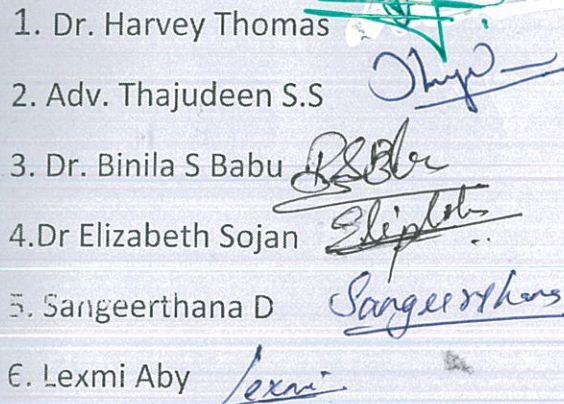 1. Dr. Harvey Thomas
2. Adv. Thajudeen S.S
3. Dr. Binila S Babu
4.Dr Elizabeth Sojan
5. Sangeerthana D Sangeerthana
6. Lexmi Aby Lexmi